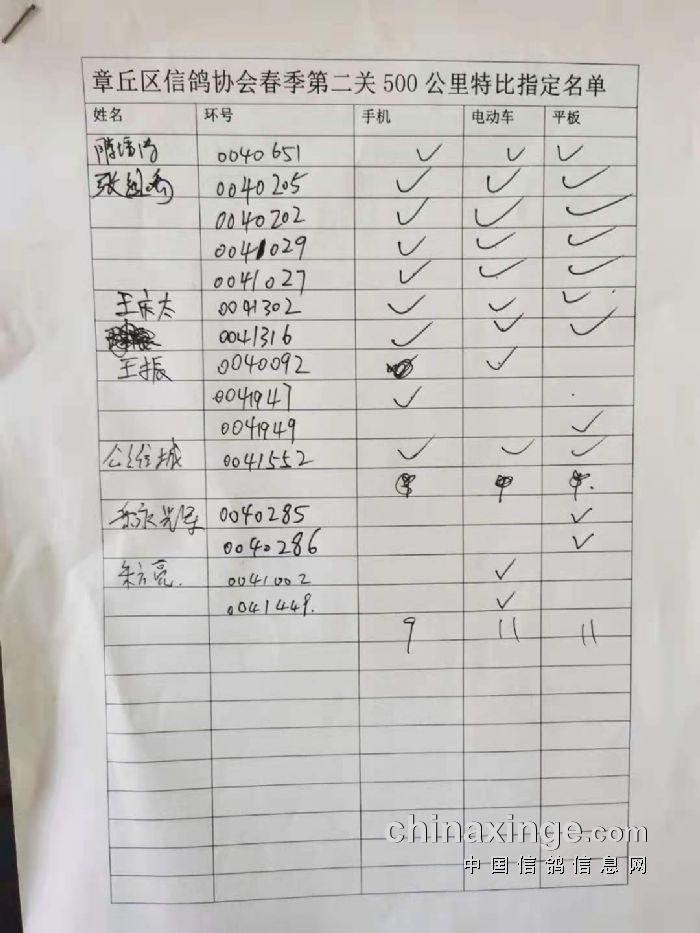 章丘区信鸽协会春季第二关500公里特比指定名单
姓名 环号 手机 电动车 平板
0040651 ✓ ✓ ✓
张 0040205 ✓ ✓ ✓
0040202 ✓ ✓ ✓
0041029 ✓ ✓ ✓
0041027 ✓ ✓ ✓
王庆太 0041302 ✓ ✓ ✓
0041316 ✓ ✓ ✓
王振 0040092 ✓
0041947 ✓
0041949 ✓
公维城 0041552 ✓ ✓ ✓
0040285 ✓
0040286 ✓
朱方亮. 0041002 ✓
0041449. ✓
9 11 11
chinaxinge.com
中国信鸽信息网